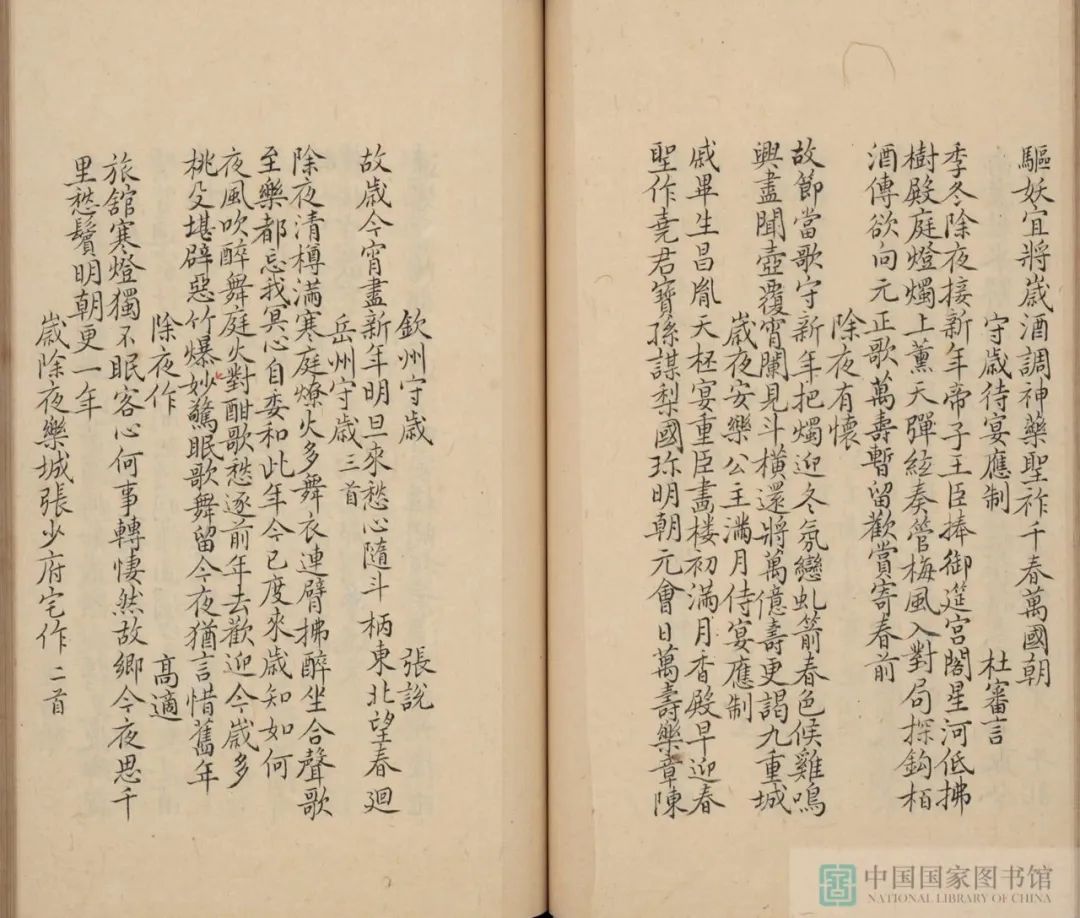 驅妖宜將歲酒調神藥聖祚千春萬國朝
守歲侍宴應制 杜審言
季冬除夜接新年帝子王臣捧御筵宮閣星河低拂
樹殿庭燈燭上薰天彈絃奏管梅風入對局探鉤柏
酒傳欲向元正歌萬壽暫留歡賞寄春前
除夜有懷
故節當歌守新年把燭迎冬氛戀虬箭春色候雞鳴
興盡聞壺覆宵闌見斗橫還將萬億壽更謁九重城
歲夜安樂公主滿月侍宴應制
戚畢生昌胤天柸宴重臣畫樓初滿月香殿早迎春
聖作堯君寶孫謀梨國珎明朝元會日萬壽樂章陳
欽州守歲 張說
故歲今宵盡新年明旦來愁心隨斗柄東北望春迴
岳州守歲 三首
除夜清樽滿寒庭燎火多舞衣連臂拂醉坐合聲歌
至樂都忘我冥心自委和此年今已度來歲知如何
夜風吹醉舞庭火對酣歌愁逐前年去歡迎今歲多
桃殳堪辟惡竹爆妙驚眠歌舞留今夜猶言惜舊年
除夜作 高適
旅舘寒燈獨不眠客心何事轉悽然故鄉今夜思千
里愁鬢明朝更一年
歲除夜樂城張少府宅作 二首
中国国家图书馆
NATIONAL LIBRARY OF CHINA